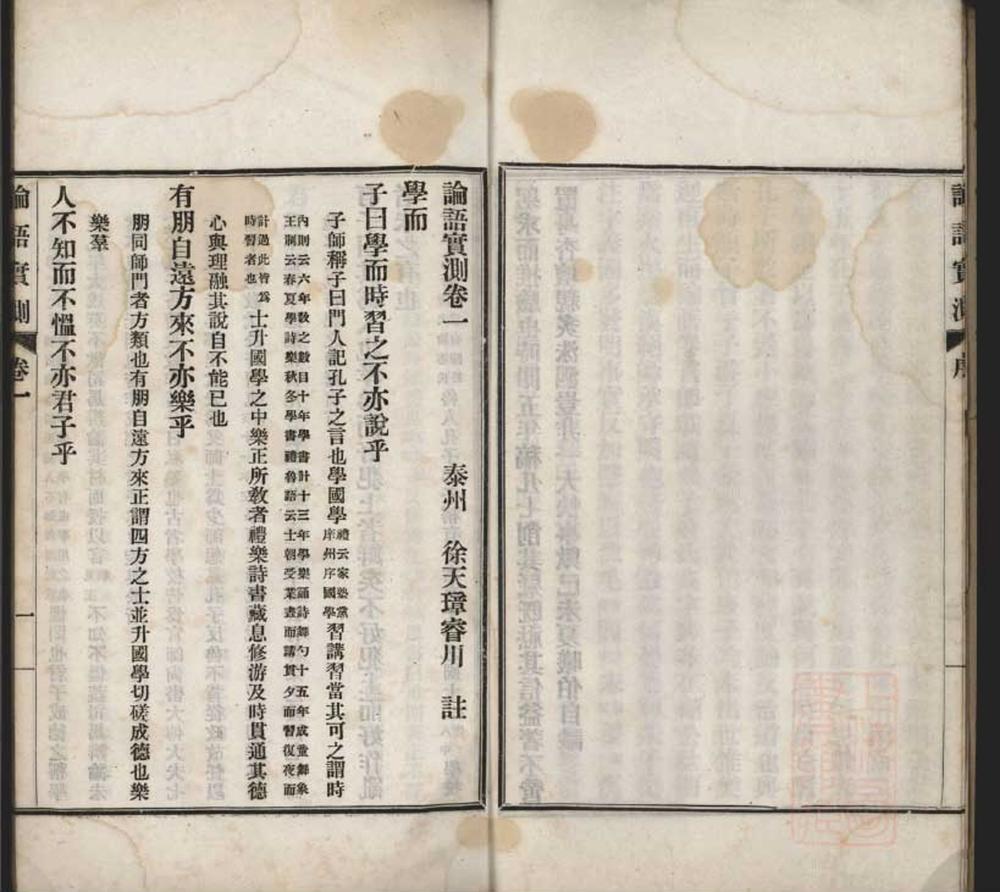 論語實測卷一
泰州 徐天璋睿川 註
學而
子曰學而時習之不亦說乎
子師稱子曰門人記孔子之言也學國學禮云家塾黨庠州序國學習講習當其可之謂時
內則云六年敎之數目十年學書計十三年學樂誦詩舞勺十五年成童舞象
王制云春夏學詩樂秋冬學書禮魯語云士朝受業晝而講貫夕而習復夜而
計過此皆爲時習者也士升國學之中樂正所敎者禮樂詩書藏息修游及時貫通其德
心與理融其說自不能已也
有朋自遠方來不亦樂乎
朋同師門者方類也有朋自遠方來正謂四方之士並升國學切磋成德也樂
樂羣
人不知而不慍不亦君子乎
論語實測 卷一 一
論語實測 序